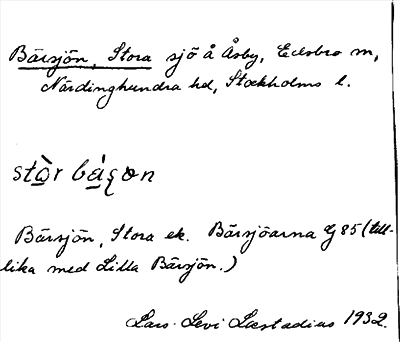 Bärsjön, Stora sjö å Åsby, Edsbro sn,
Närdinghundra hd, Stockholms l.
Bärsjön, Stora ek. Bärsjöarna G 85 (till-
lika med Lilla Bärsjön.)
Lars-Levi Læstadius 1932.